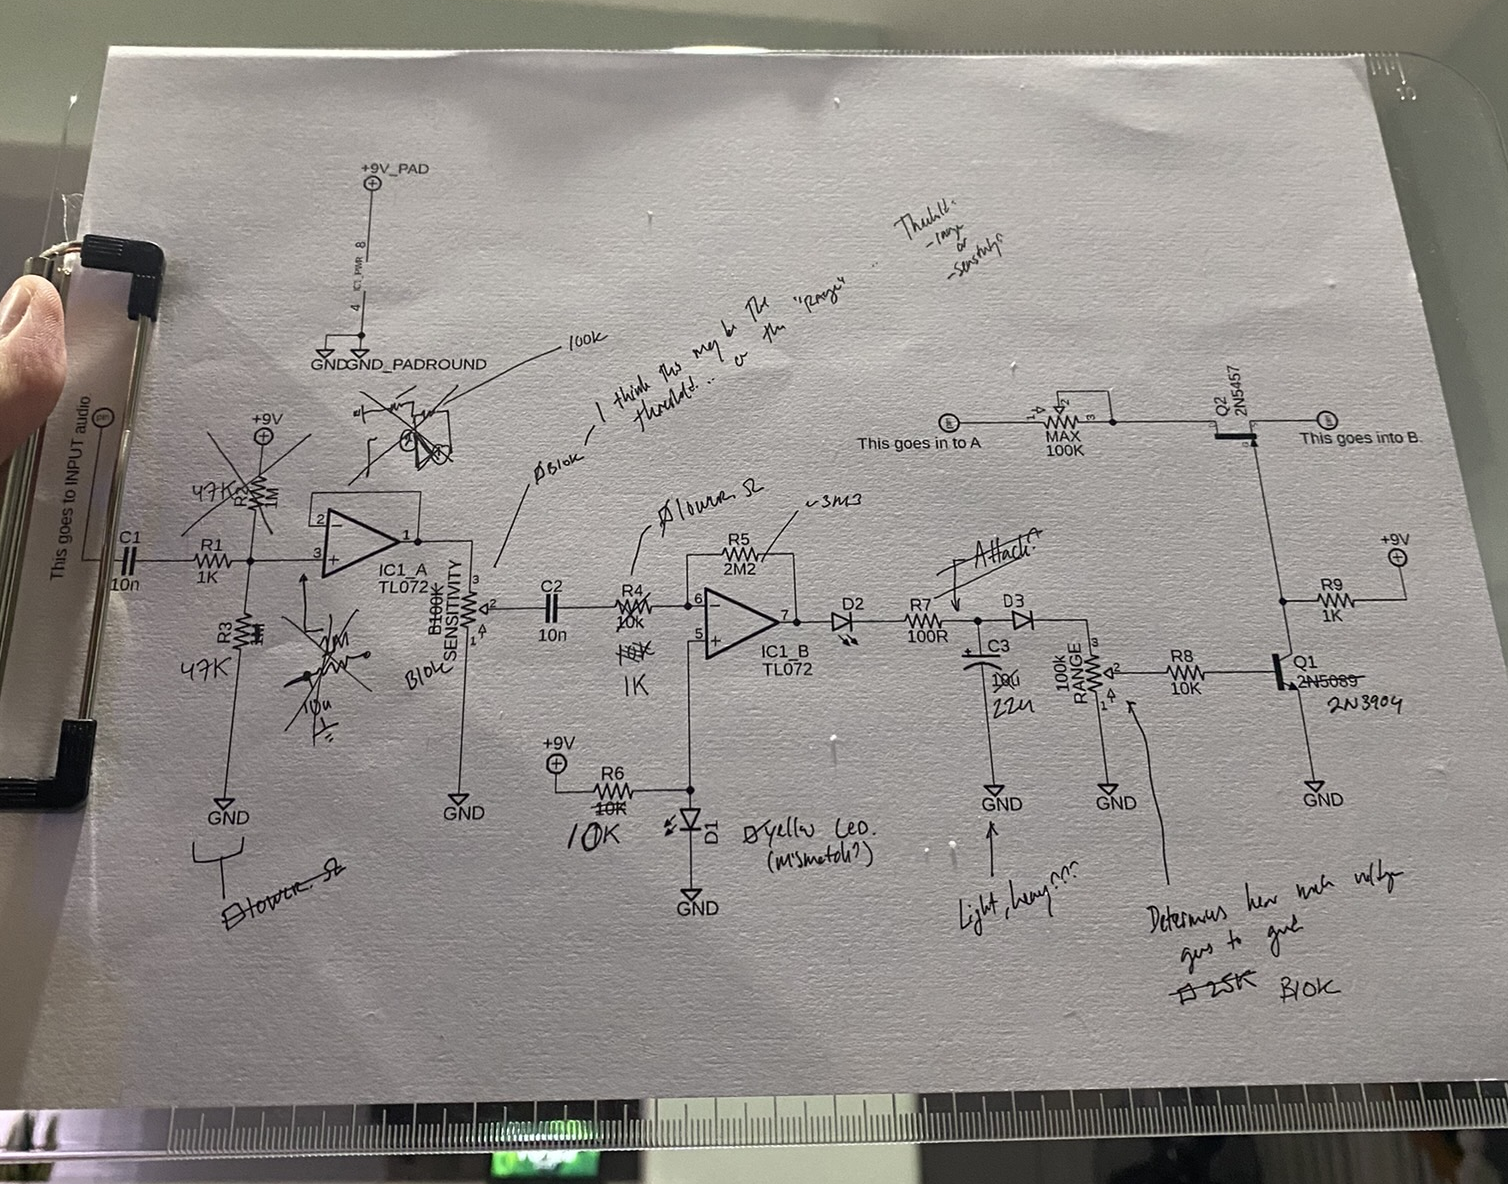 +9V_PAD
8
IC1_PWR
4
GND
GND_PADROUND
100K
Threshld.
- range
or
- Sensitivity?
I think this may be the
threshold.. or the "Range" ..
B10K
This goes to INPUT audio
+9V
47K
R2
1M
C1
10n
R1
1K
R3
47K
GND
lower Ω
10u
2
3
1
IC1_A
TL072
B100K
SENSITIVITY
B10K
3
2
1
GND
C2
10n
lower Ω
R4
10k
10K
1K
R5
2M2
~3M3
6
5
7
IC1_B
TL072
+9V
R6
10K
10K
D1
GND
yellow LED.
(mismatch?)
D2
R7
100R
Attack?
C3
+
10u
22u
GND
Light, heavy???
D3
100k
RANGE
3
2
1
GND
Determines how much voltage
goes to gnd
25K B10K
R8
10K
Q1
2N5089
2N3904
GND
R9
1K
+9V
This goes in to A
1
2
3
MAX
100K
Q2
2N5457
This goes into B.